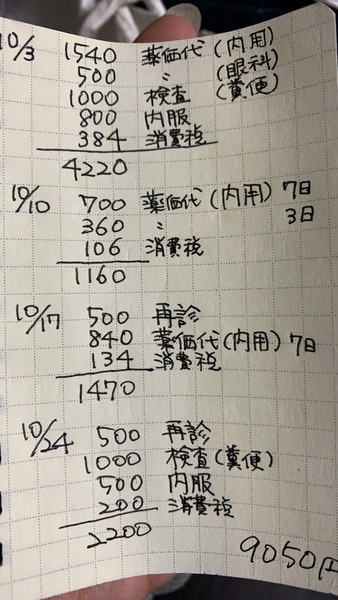 10/3 1540 薬価代 (内用)
500 〃 (眼科)
1000 検査 (糞便)
800 内服
384 消費税
4220
10/10 700 薬価代 (内用) 7日
360 〃 3日
106 消費税
1160
10/17 500 再診
840 薬価代 (内用) 7日
134 消費税
1470
10/24 500 再診
1000 検査 (糞便)
500 内服
200 消費税
2200
9050円